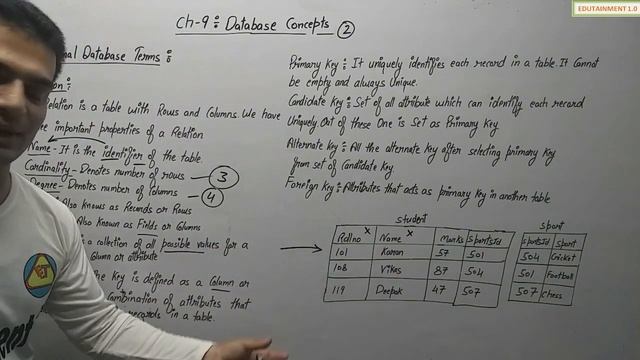 Ch-9 : Database Concepts 2
EDUTAINMENT 1.0
Database Terms :
Relation is a table with Rows and Columns. We have
important properties of a Relation
Name - It is the identifier of the table.
Cardinality - Denotes number of rows - 3
Degree - Denotes number of Columns - 4
Also Known as Records or Rows
Also Known as Fields or Columns
is a collection of all possible values for a
Column or attribute
the key is defined as a Column or
Combination of attributes that
records in a table.
Primary Key : It uniquely identifies each record in a table. It Cannot
be empty and always Unique.
Candidate Key : Set of all attribute which can identify each record
Uniquely Out of these One is Set as Primary Key
Alternate Key : All the alternate key after selecting primary Key
from set of Candidate Key
Foreign Key : Attributes that acts as primary Key in another table
student
Rollno x Name x Marks Sportsid
101 Karan 57 501
108 Vikas 87 504
119 Deepak 47 507
Sport
Sportsid Sport
504 Cricket
501 Football
507 Chess